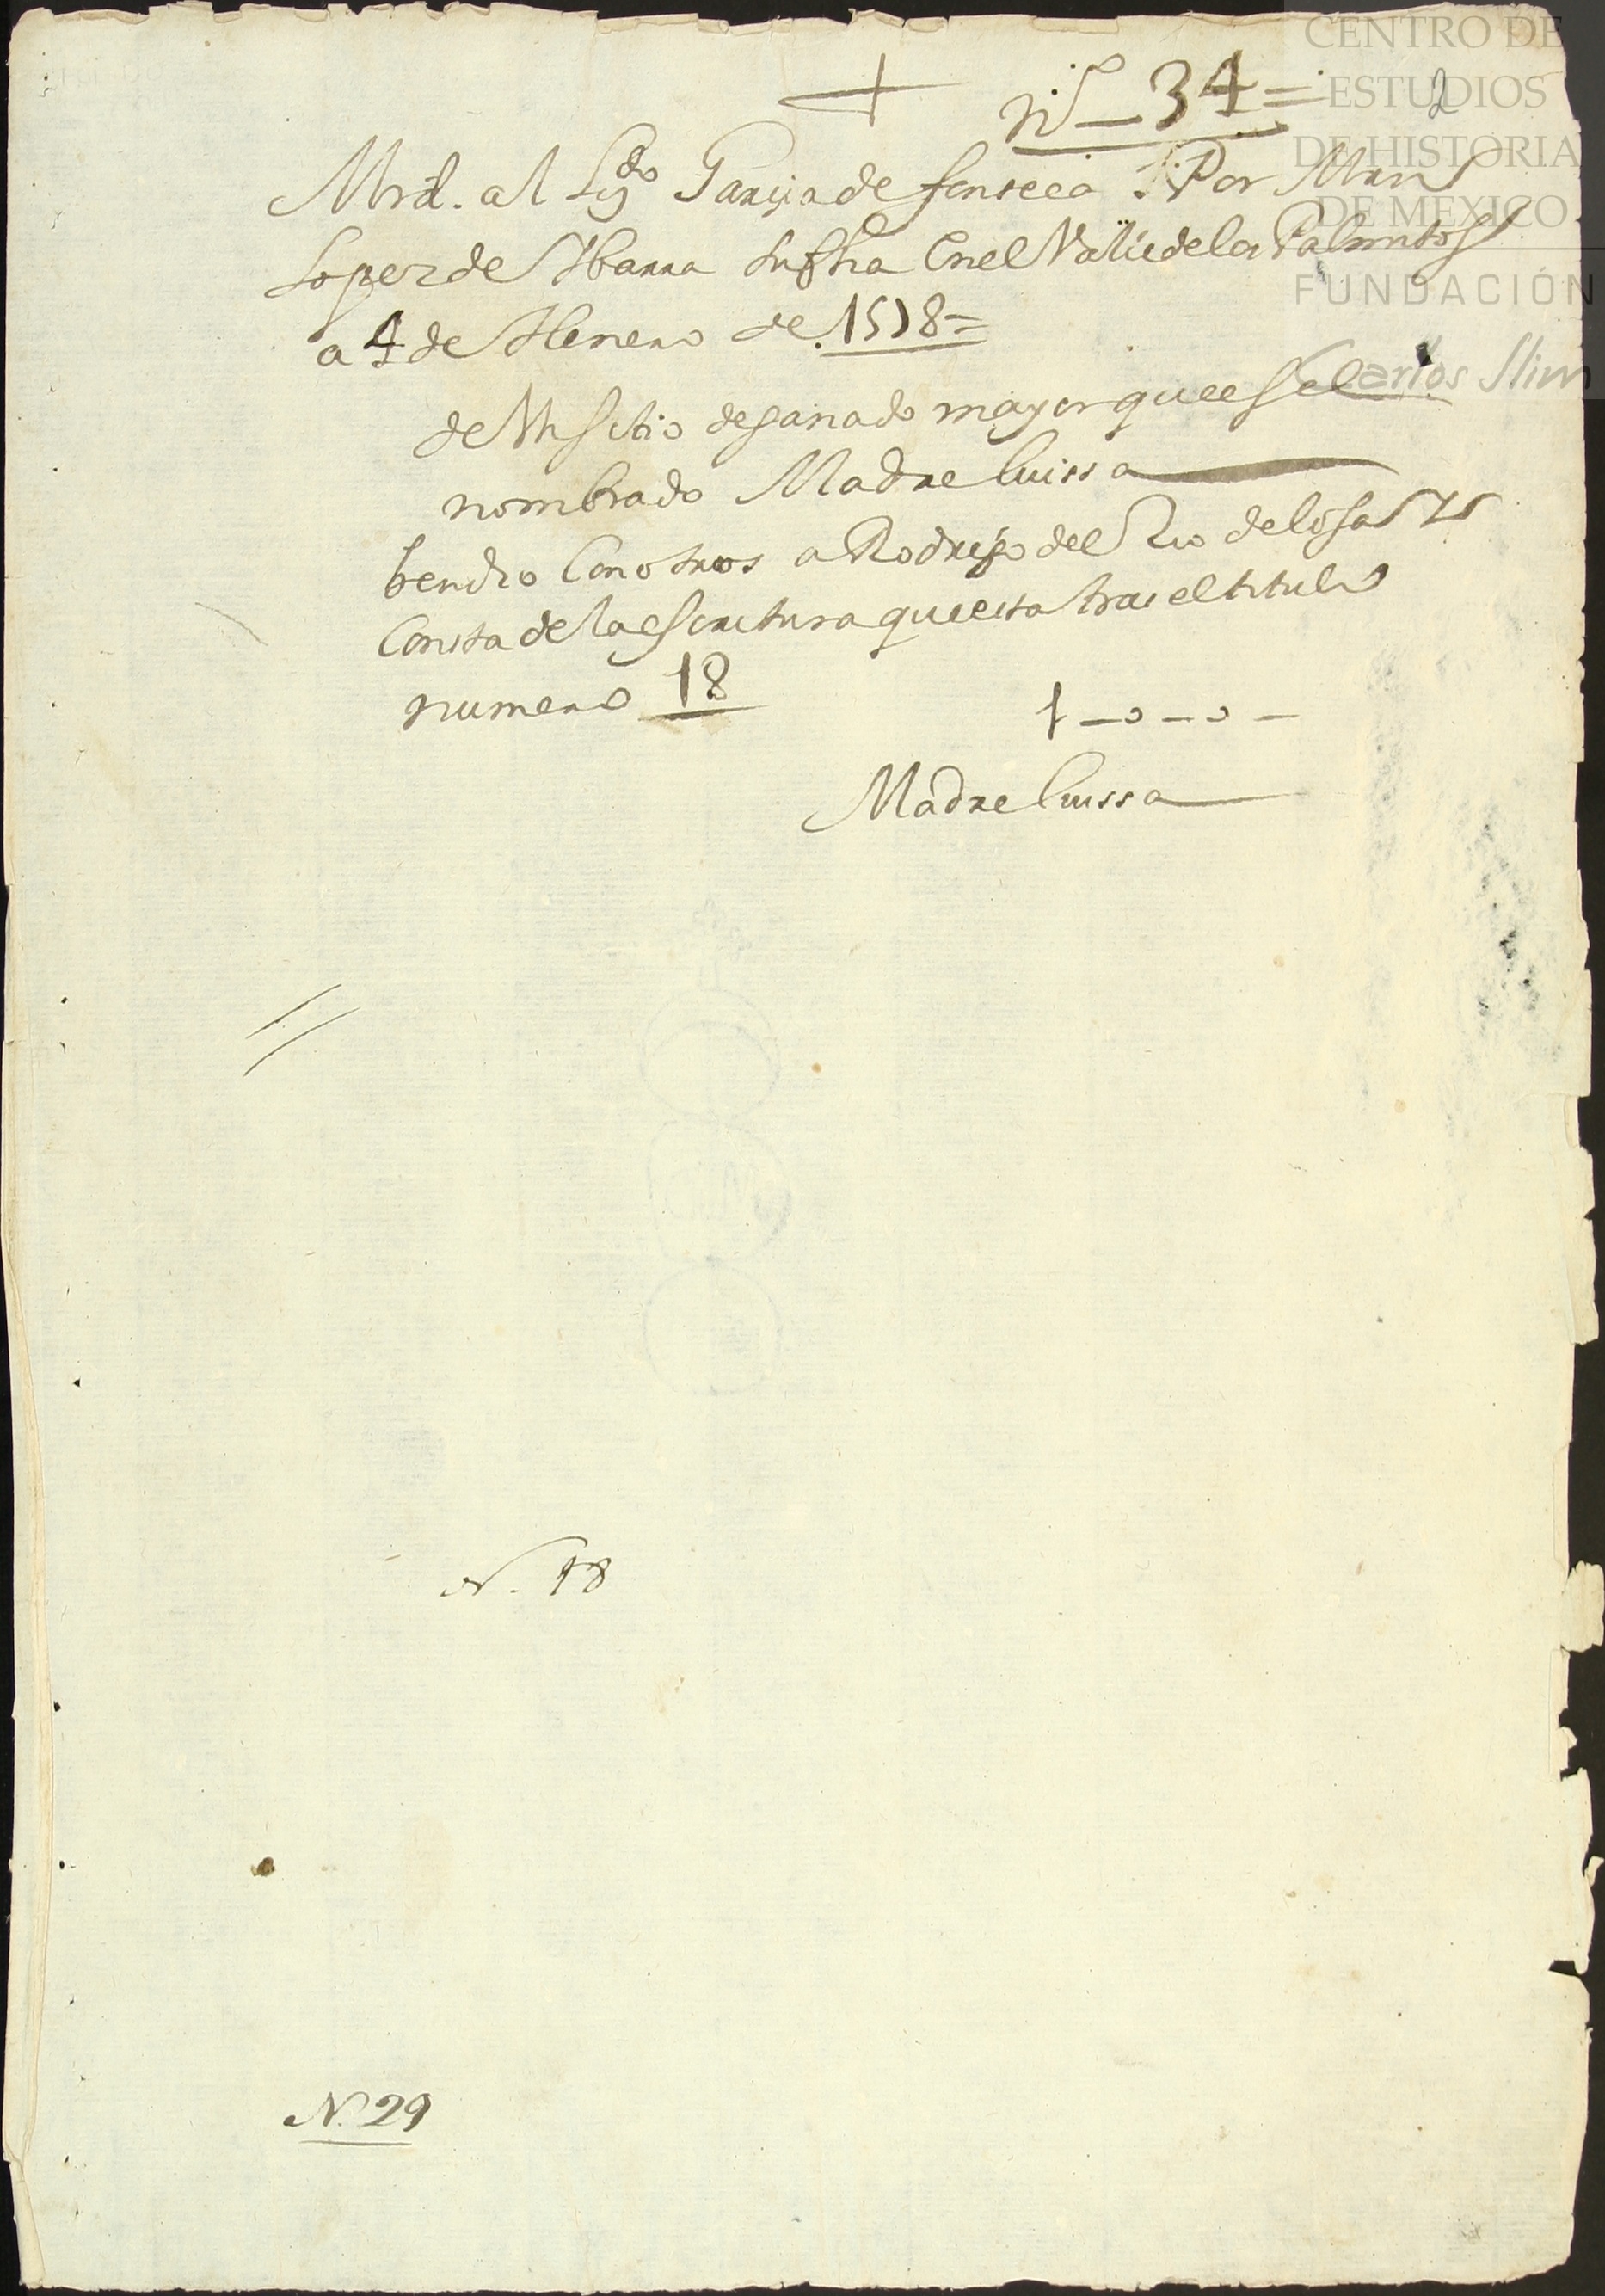 CENTRO DE
ESTUDIOS
DE HISTORIA
DE MEXICO
FUNDACIÓN
Carlos Slim
nº 34 = 2
Mrd. al Lyᵈᵒ Garçia de fonseca Por Mrn
Lopez de Ybarra su fha En el Valle de los Palmitos
a 4 de Henero de 1578 =
de Un sitio de ganado mayor que es el
nombrado Madre Luissa
bendio Con otros a Rodrigo del Rio de losa
Consta de la escritura que esta tras el titulo
numero 18
1 — o — o —
Madre Luissa
N. 18
N. 29